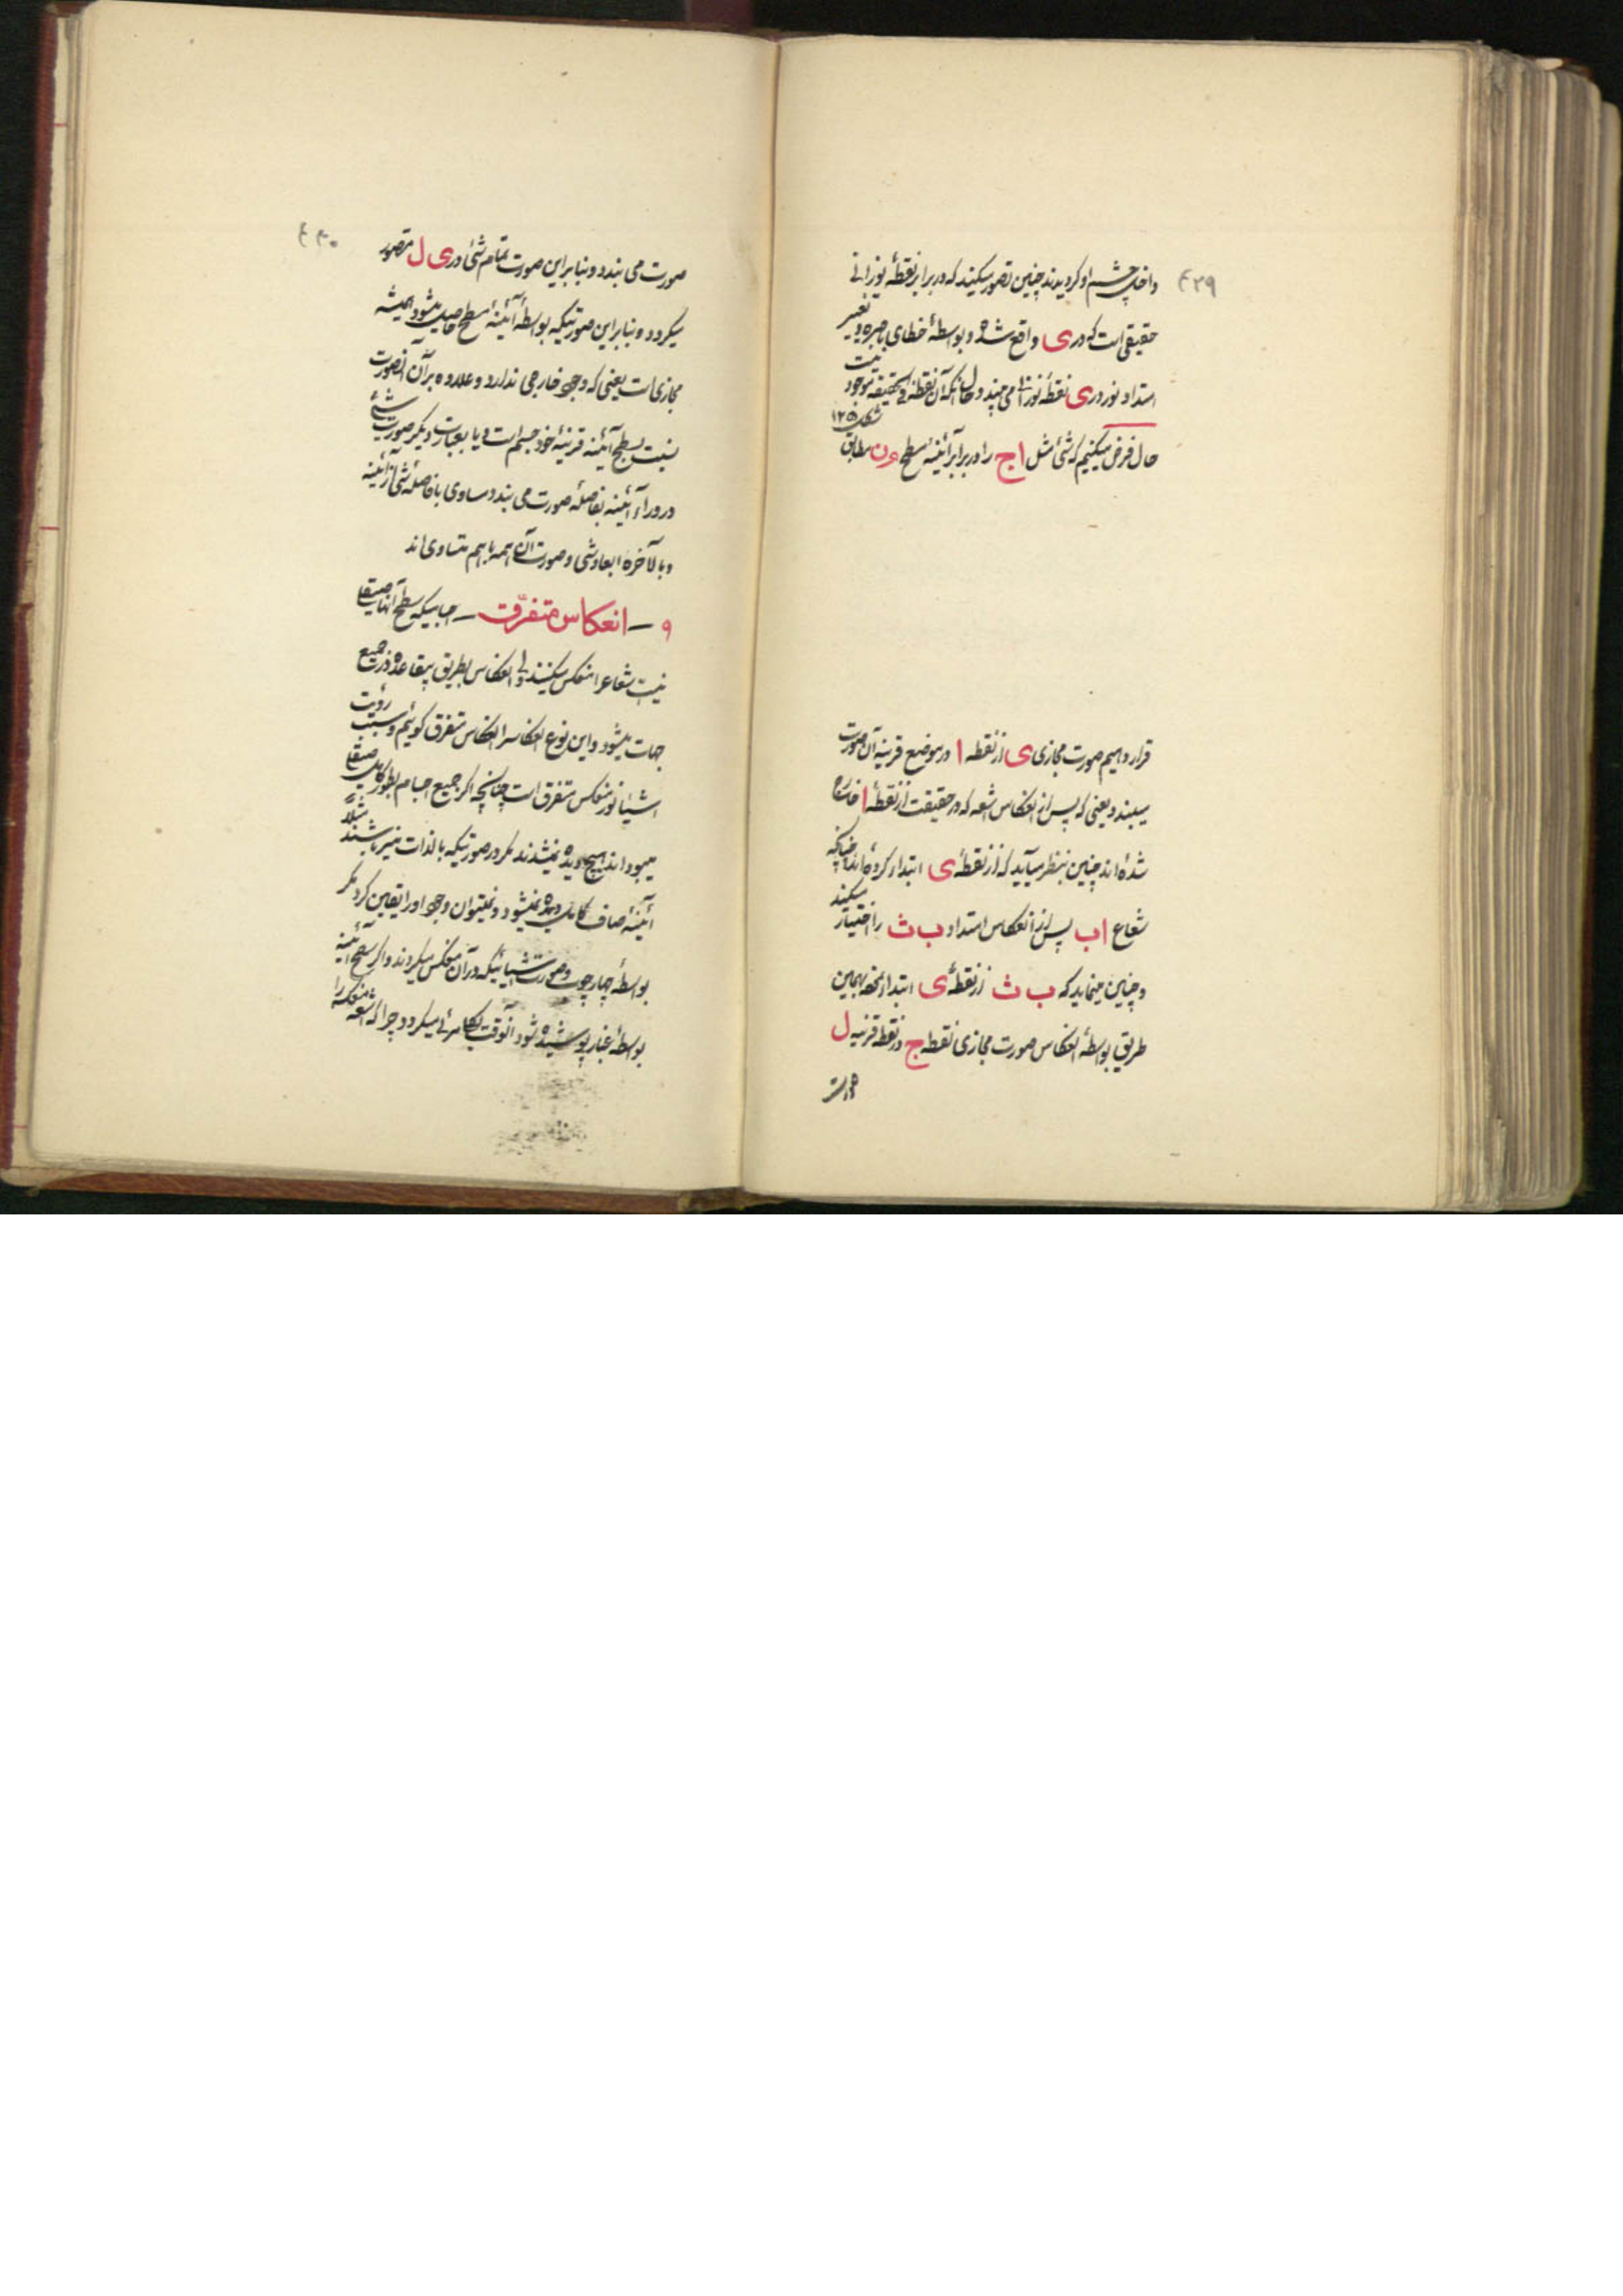 ۴۲۹
داخل چشم او گردیدند چنین تصور میکنند که در برابر نقطهٔ نورانی
حقیقی است که در ی واقع شده و بواسطهٔ خطای باصره و تغییر
امتداد نور در ی نقطه نورانی می بیند و حال آنکه آن نقطه فی الحقیقه موجود نیست
حال فرض میکنیم که شئی مثل ا ج را در برابر آئینه مسطح م ن مطابق شکل ۱۲۵
قرار دهیم صورت مجازی ی از نقطه ا در موضع قرینه آن صورت
میبندد یعنی که پس از انعکاس اشعه که در حقیقت از نقطهٔ ا خارج
شده اند چنین بنظر میآید که از نقطهٔ ی ابتداء کرده اند چنانچه
شعاع ا ب پس از انعکاس امتداد ب ث را اختیار میکند
و چنین مینماید که ب ث از نقطهٔ ی ابتداء نموده بهمین
طریق بواسطهٔ انعکاس صورت مجازی نقطه ج در نقطه قرینه ل
صورت
۴۳۰
صورت می بندد و بنابراین صورت تمام شئی در ی ل متصور
میگردد و بنابراین صورتیکه بواسطهٔ آئینهٔ مسطح حاصل میشود همیشه
مجازی است یعنی که وجود خارجی ندارد و علاوه بر آن آنصورت
نسبت بسطح آئینه قرینهٔ خود جسم است و یا بعبارت دیگر صورت شئی
در وراء آئینه بفاصلهٔ صورت می بندد مساوی با فاصلهٔ شئی از آئینه
و بالاخره ابعاد شئی و صورت آن همه با هم متساوی اند
۹ – انعکاس متفرّق – اجسامیکه سطح آنها صیقلی
نیست شعاع را منعکس میکنند ولی انعکاس بطریق بیقاعده در جمیع
جهات میشود و این نوع انعکاس را انعکاس متفرق گوئیم و سبب رؤیت
اشیاء نور منعکس متفرق است چنانچه اگر جمیع اجسام بطور کامل صیقلی
میبودند هیچ دیده نمیشدند مگر در صورتیکه بالذات منیر باشند مثلاً
آئینهٔ صاف کامل دیده نمیشود و نمیتوان وجود او را یقین کرد مگر
بواسطهٔ چارچوب و صورت اشیائیکه در آن منعکس میگردند و اگر سطح آئینه
بواسطهٔ غبار پوشیده شود آنوقت بکلی مرئی میگردد چرا که اشعه منعکسه را